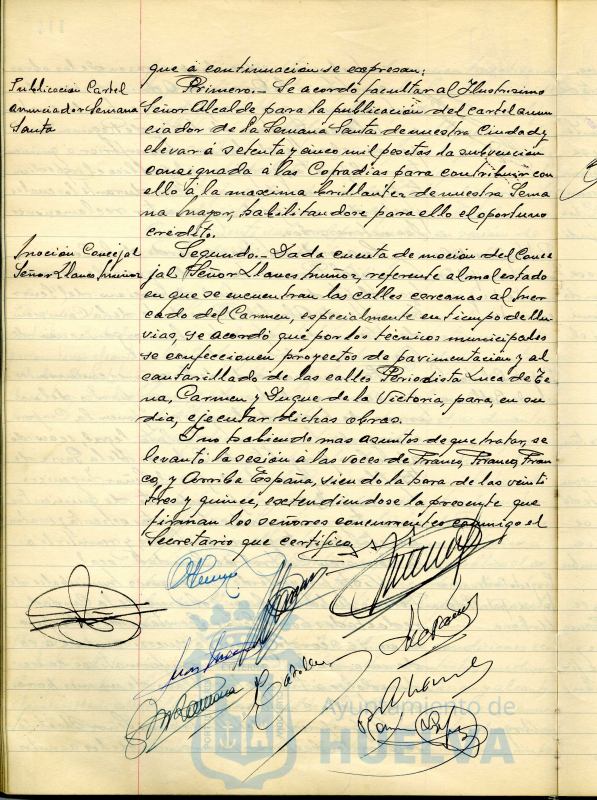 que á continuación se expresan:
Publicación Cartel
anunciador Semana
Santa
Primero.- Se acordó facultar al Ilustrisimo
Señor Alcalde para la publicación del cartel anun-
ciador de la Semana Santa de nuestra Ciudad y
elevar á setenta y cinco mil pesetas la subvencion
consignada á las Cofradias para contribuir con
ello á la maxima brillantez de nuestra Sema
na Mayor, habilitandose para ello el oportuno
credito.
Moción Concejal
Señor Llanes Muñoz
Segundo.- Dada cuenta de moción del Conce
jal Señor Llanes Muñoz, referente al mal estado
en que se encuentran las calles cercanas al Mer
cado del Carmen, especialmente en tiempo de llu
vias, se acordó que por los técnicos municipales
se confeccionen proyectos de pavimentacion y al
cantarillado de las calles Periodista Luca de Te
na, Carmen y Duque de la Victoria, para, en su
dia, ejecutar dichas obras.
Y no habiendo mas asuntos de que tratar, se
levantó la sesión á las voces de Franco, Franco, Fran
co, y Arriba España, siendo la hora de las veinti
tres y quince, extendiendose la presente que
firman los señores concurrentes conmigo el
Secretario que certifico
Ayuntamiento de
HUELVA